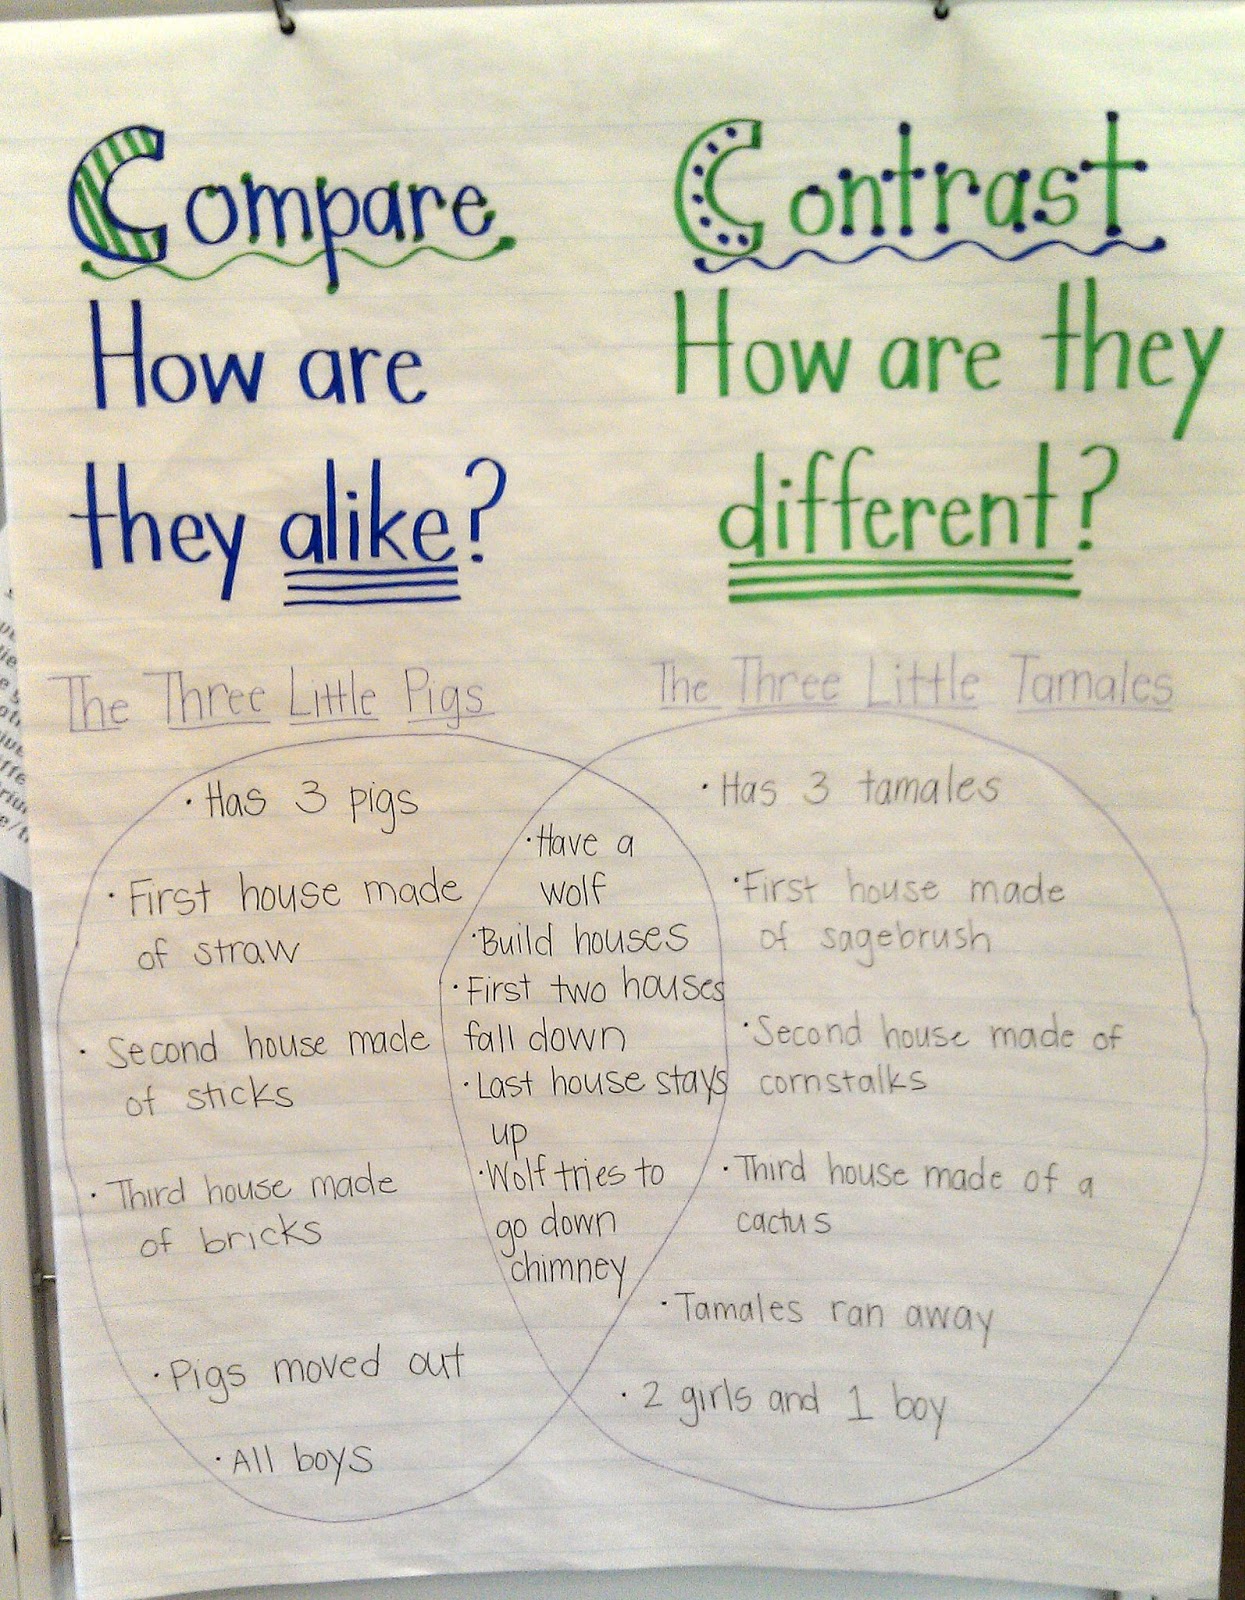 Compare
How are
they alike?
Contrast
How are they
different?
The Three Little Pigs
The Three Little Tamales
· Has 3 pigs
· First house made
of straw
· Second house made
of sticks
· Third house made
of bricks
· Pigs moved out
· All boys
· Have a
wolf
· Build houses
· First two houses
fall down
· Last house stays
up
· Wolf tries to
go down
chimney
· Has 3 tamales
· First house made
of sagebrush
· Second house made of
cornstalks
· Third house made of a
cactus
· Tamales ran away
· 2 girls and 1 boy